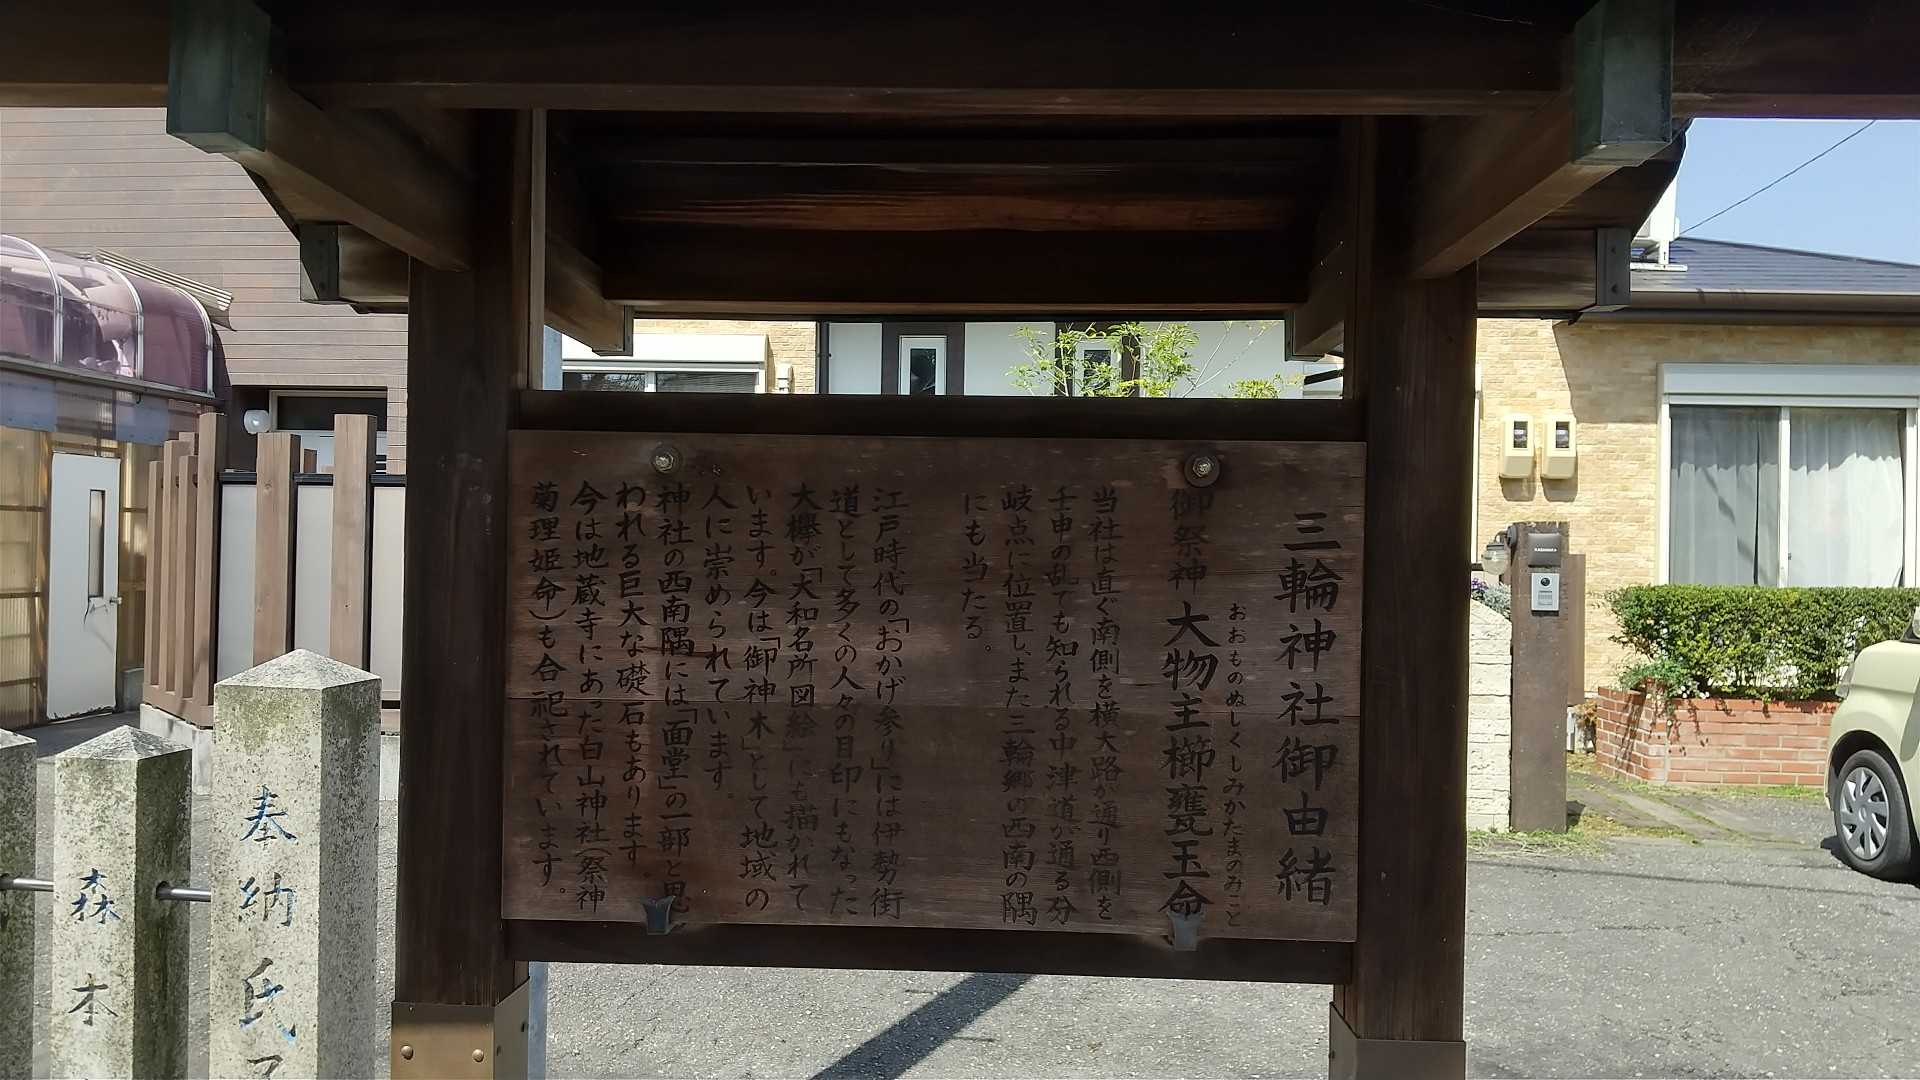 三輪神社御由緒
おおものぬしくしみかたまのみこと
御祭神 大物主櫛甕玉命
当社は直ぐ南側を横大路が通り西側を
壬申の乱でも知られる中津道が通る分
岐点に位置し、また三輪郷の西南の隅
にも当たる。
江戸時代の「おかげ参り」には伊勢街
道として多くの人々の目印にもなった
大欅が「大和名所図絵」にも描かれて
います。今は「御神木」として地域の
人に崇められています。
神社の西南隅には「面堂」の一部と思
われる巨大な礎石もあります。
今は地蔵寺にあった白山神社(祭神
菊理姫命)も合祀されています。
奉納氏子
森本